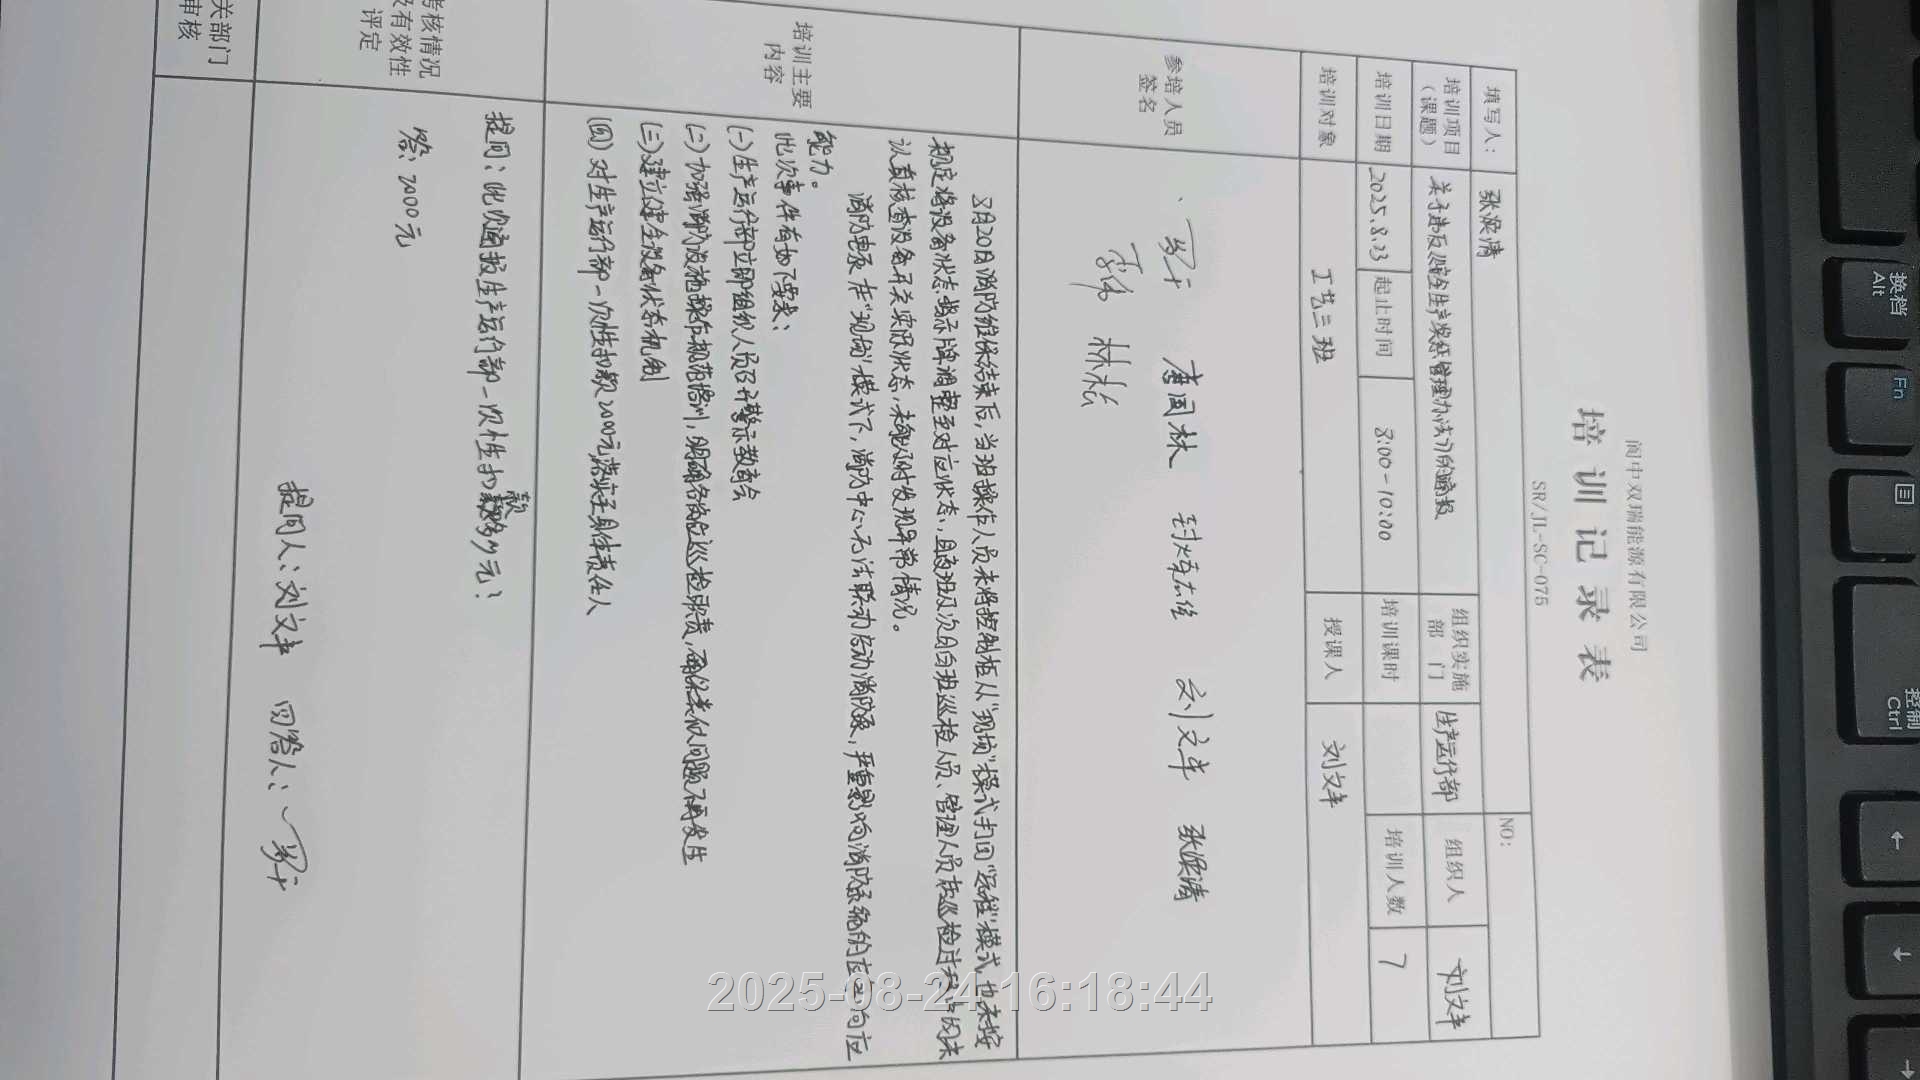 阆中双瑞能源有限公司
培训记录表
SR/JL-SC-075
填写人： 张浪清 NO:
培训项目（课题） 关于违反《安全生产奖惩管理办法》的通报 组织实施部门 生产运行部 组织人 刘文丰
培训日期 2025.8.23 起止时间 8:00-10:00 培训课时 培训人数 7
培训对象 工艺三班 授课人 刘文丰
参培人员签名
唐国林 刘文丰 张浪清
李伟 林杰
培训主要内容
8月20日消防维保结束后，当班操作人员未将控制柜从“现场”模式打回“远程”模式，也未按
规定将设备状态指示牌调整至对应状态，且夜班及次日白班巡检人员、管理人员在巡检过程中因未
认真核查设备开关实际状态，未能及时发现异常情况。
消防电泵在“现场”模式下，消防中心无法联动启动消防泵，严重影响消防系统的应急响应
能力。
此次事件有如下要求：
(一)生产运行部立即组织人员召开警示教育会
(二)加强消防设施操作规范培训，明确各岗位巡检职责，确保类似问题不再发生
(三)建立健全设备状态机制
(四)对生产运行部一次性扣款2000元落实至具体责任人
考核情况及有效性评定
提问：此次通报生产运行部一次性扣款多少元？
答：2000元
提问人：刘文丰 回答人：
关部门审核
换档
Alt
Fn
控制
Ctrl
2025-08-24 16:18:44